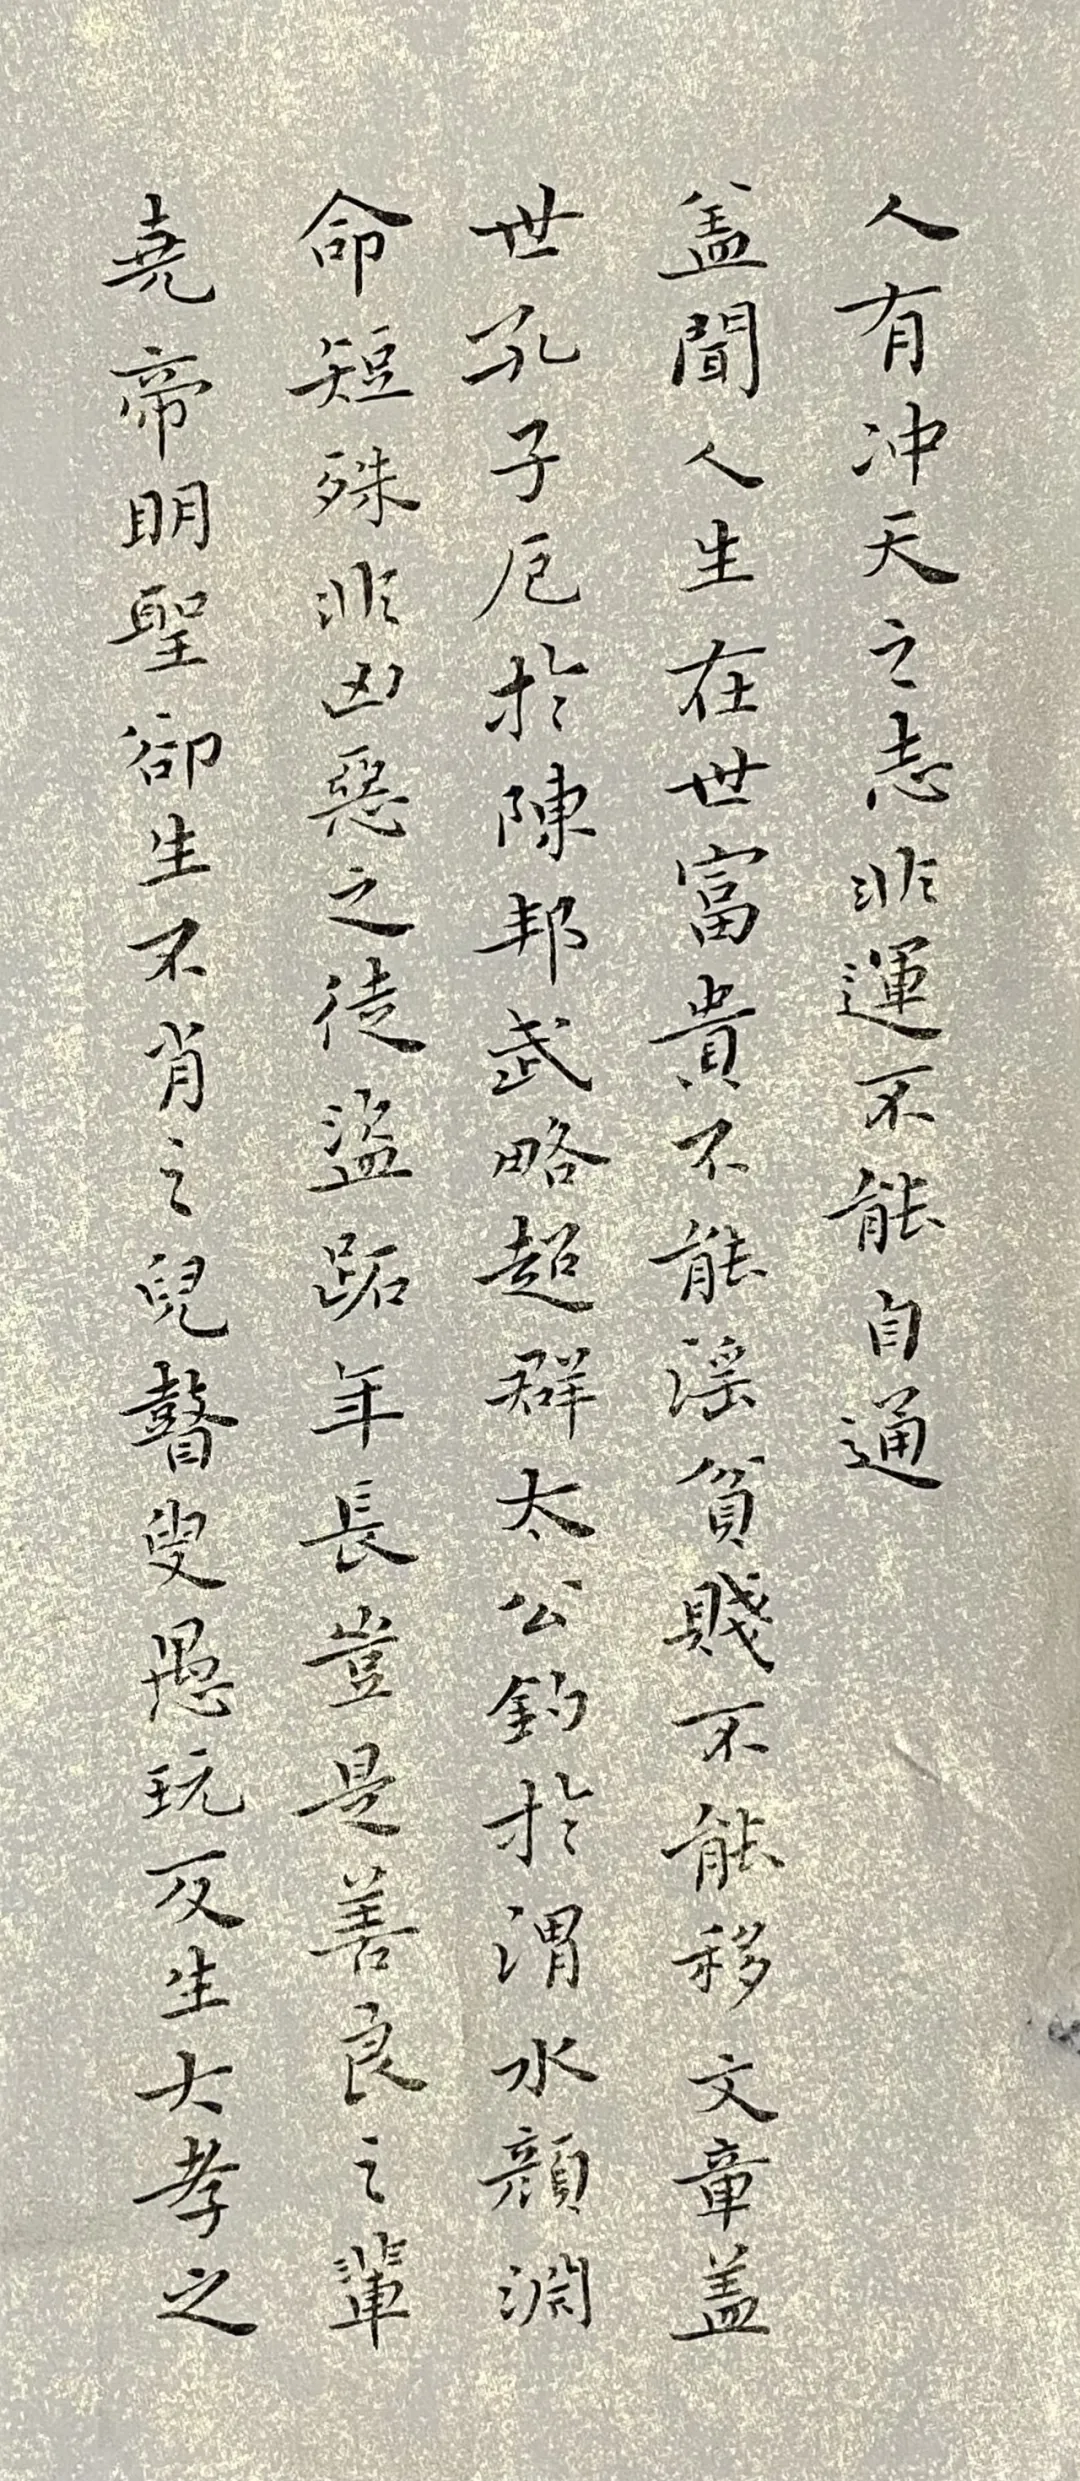 人有冲天之志非運不能自通
盖聞人生在世富貴不能淫貧賤不能移文章盖
世孔子厄於陳邦武略超群太公釣於渭水顔淵
命短殊非凶惡之徒盜跖年長豈是善良之輩
堯帝明聖卻生不肖之兒瞽叟愚玩反生大孝之